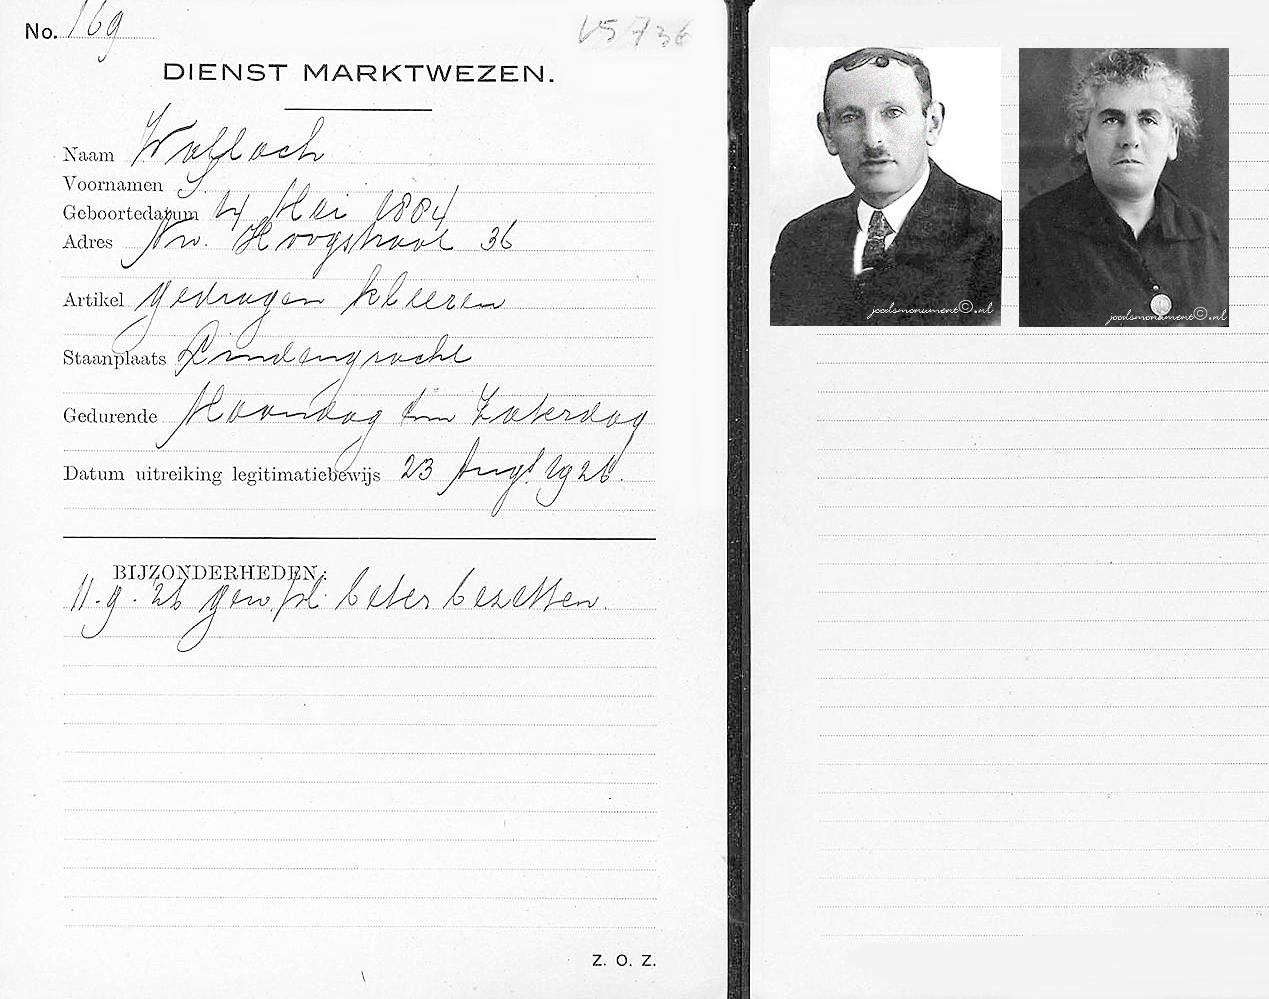 No. 169
V5736
DIENST MARKTWEZEN.
Naam Wallach
Voornamen S.
Geboortedatum 4 Mei 1884
Adres Nw. Hoogstraat 36
Artikel gedragen kleeren
Staanplaats Lindengracht
Gedurende Maandag t/m Zaterdag
Datum uitreiking legitimatiebewijs 23 Augt. 1926.
BIJZONDERHEDEN:
11-9-26 gew. pl. beter bezetten.
Z. O. Z.
joodsmonument©.nl
joodsmonument©.nl